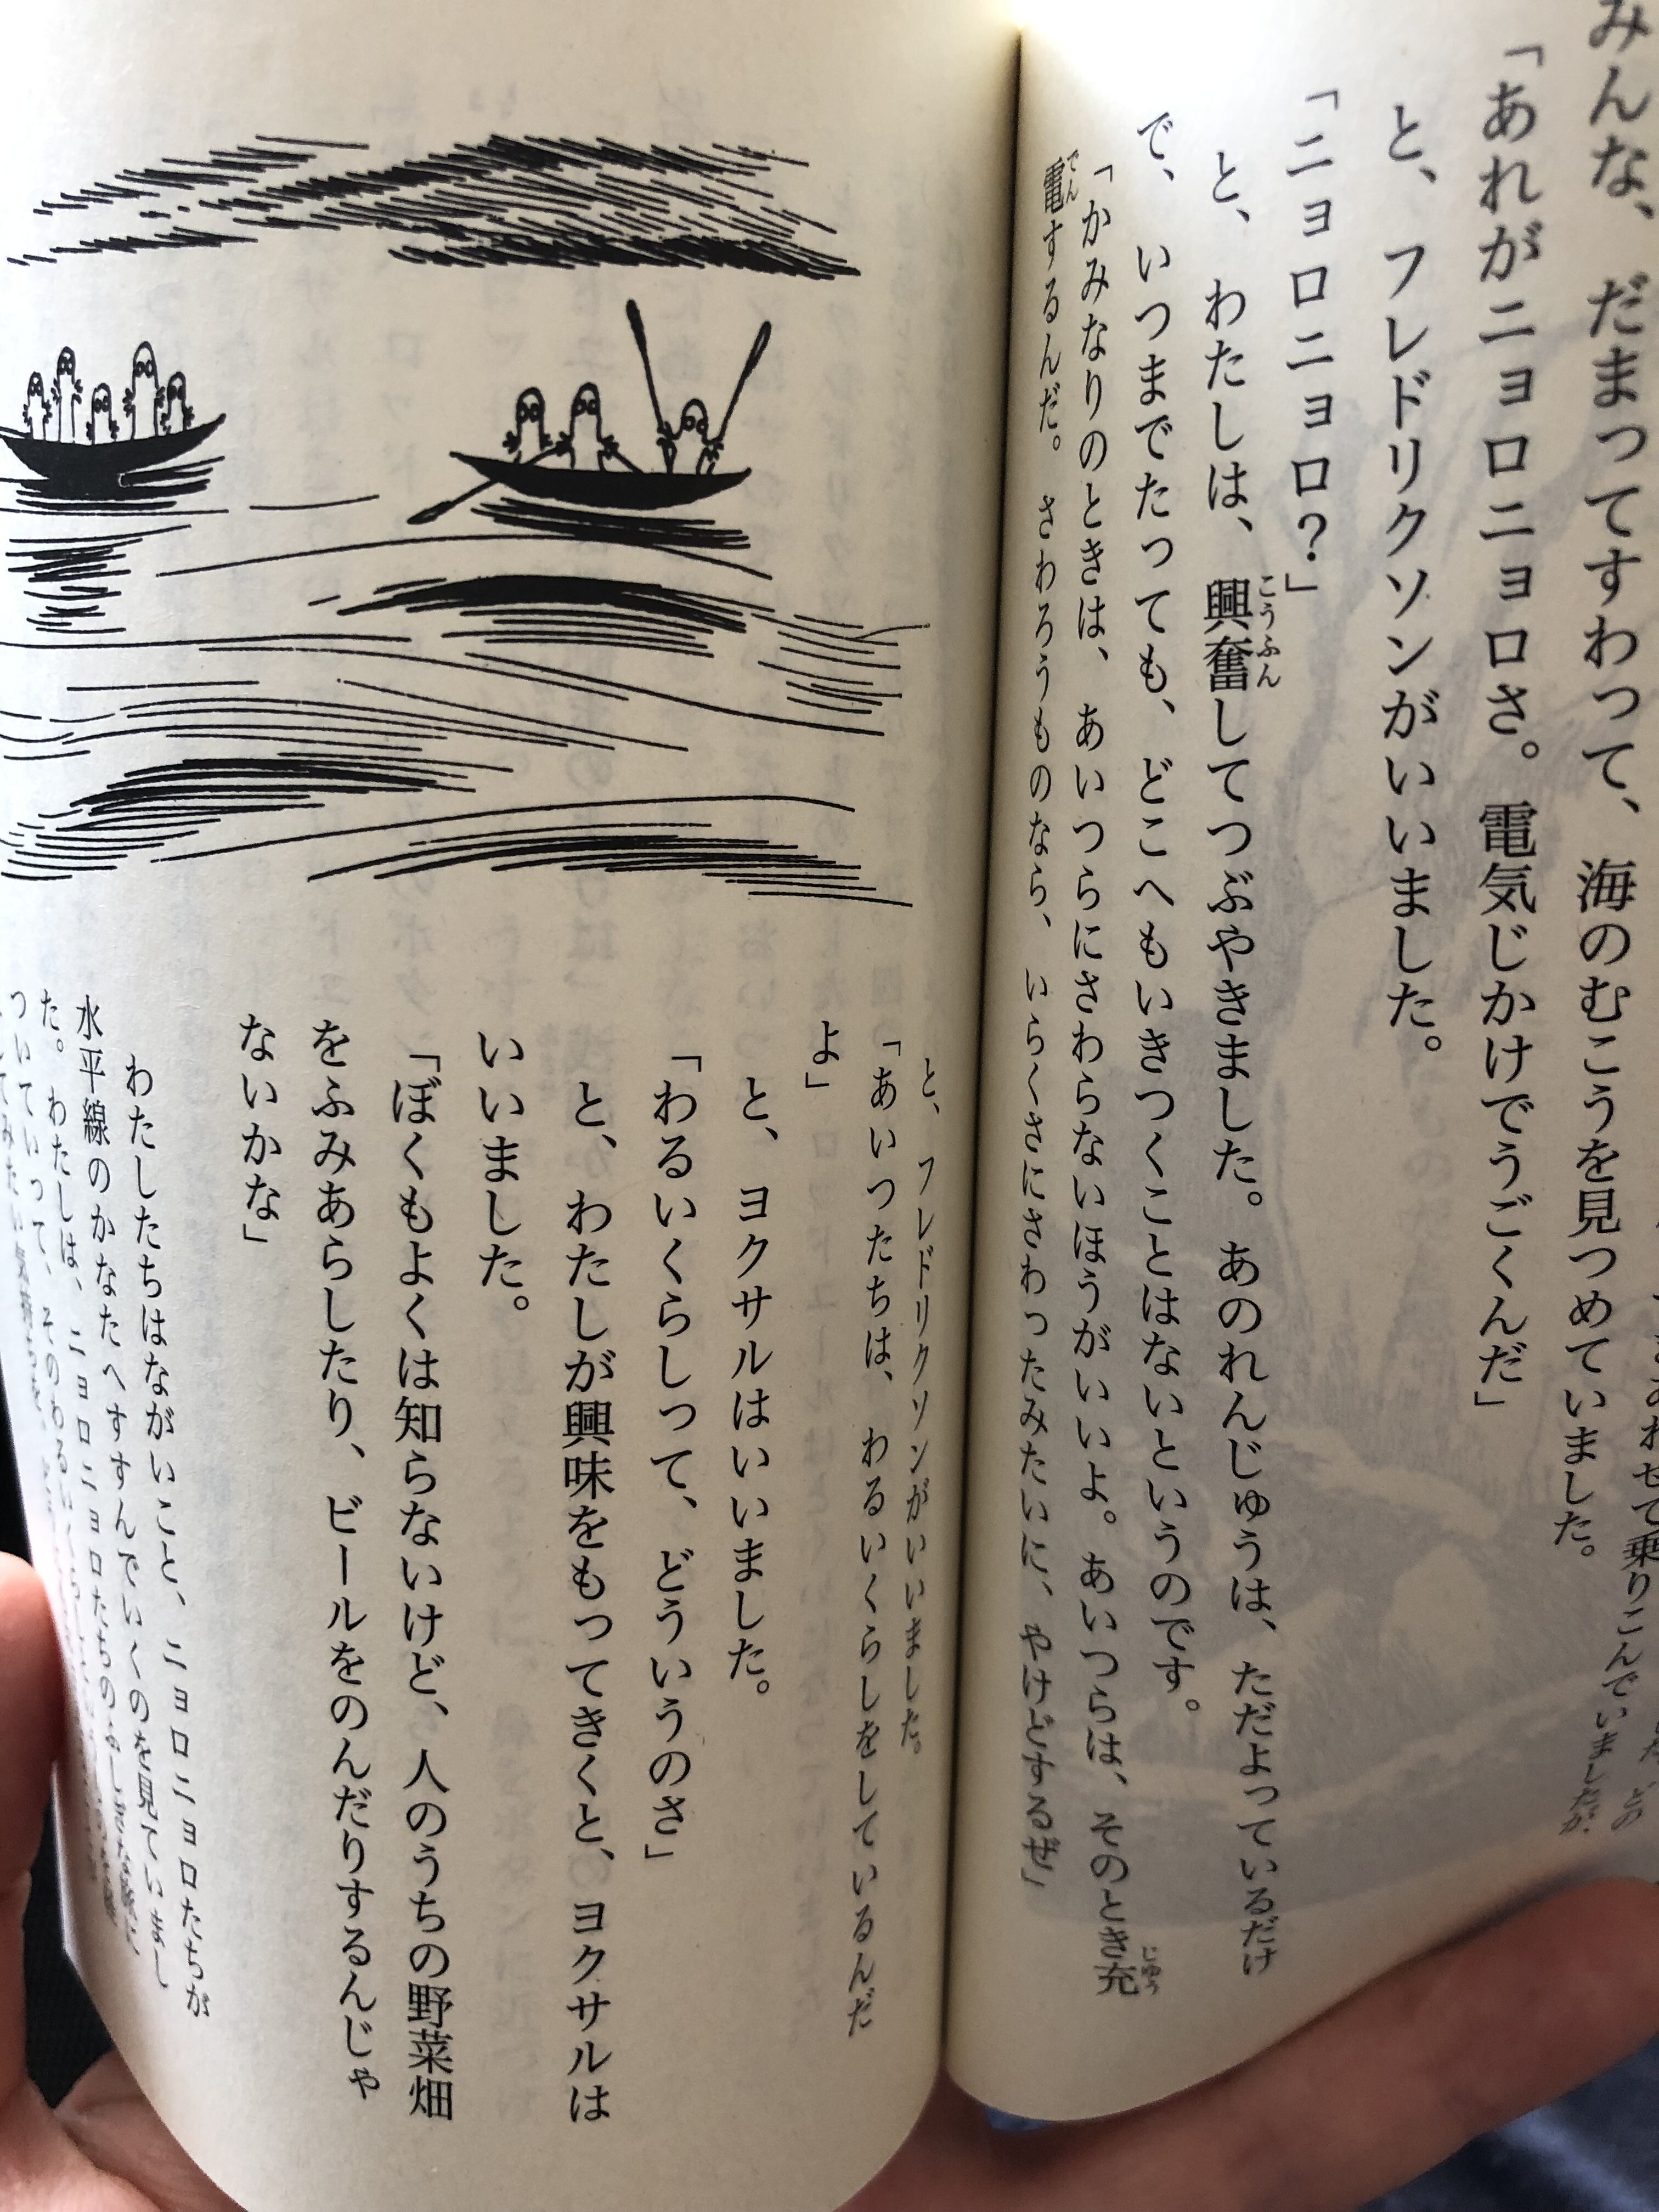 みんな、だまってすわって、海のむこうを見つめていました。
「あれがニョロニョロさ。電気じかけでうごくんだ」
と、フレドリクソンがいいました。
「ニョロニョロ？」
と、わたしは、興奮してつぶやきました。あのれんじゅうは、ただよっているだけ
で、いつまでたっても、どこへもいきつくことはないというのです。
「かみなりのときは、あいつらにさわらないほうがいいよ。あいつらは、そのとき充
電するんだ。さわろうものなら、いらくさにさわったみたいに、やけどするぜ」
と、フレドリクソンがいいました。
「あいつたちは、わるいくらしをしているんだ
よ」
と、ヨクサルはいいました。
「わるいくらしって、どういうのさ」
と、わたしが興味をもってきくと、ヨクサルは
いいました。
「ぼくもよくは知らないけど、人のうちの野菜畑
をふみあらしたり、ビールをのんだりするんじゃ
ないかな」
わたしたちはながいこと、ニョロニョロたちが
水平線のかなたへすすんでいくのを見ていまし
た。わたしは、ニョロニョロたちの
ついていって、そのわるい